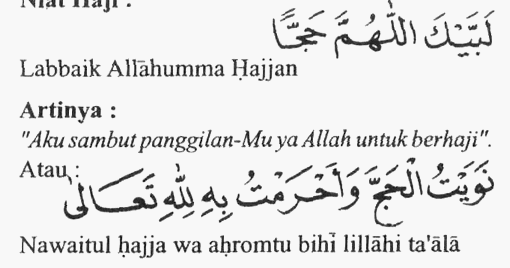 Niat Haji :
لَبَّيْكَ اللّٰهُمَّ حَجًّا
Labbaik Allāhumma Ḥajjan
Artinya :
"Aku sambut panggilan-Mu ya Allah untuk berhaji".
Atau :
نَوَيْتُ الْحَجَّ وَأَحْرَمْتُ بِهِ لِلّٰهِ تَعَالَىٰ
Nawaitul ḥajja wa aḥromtu bihī lillāhi ta'ālā